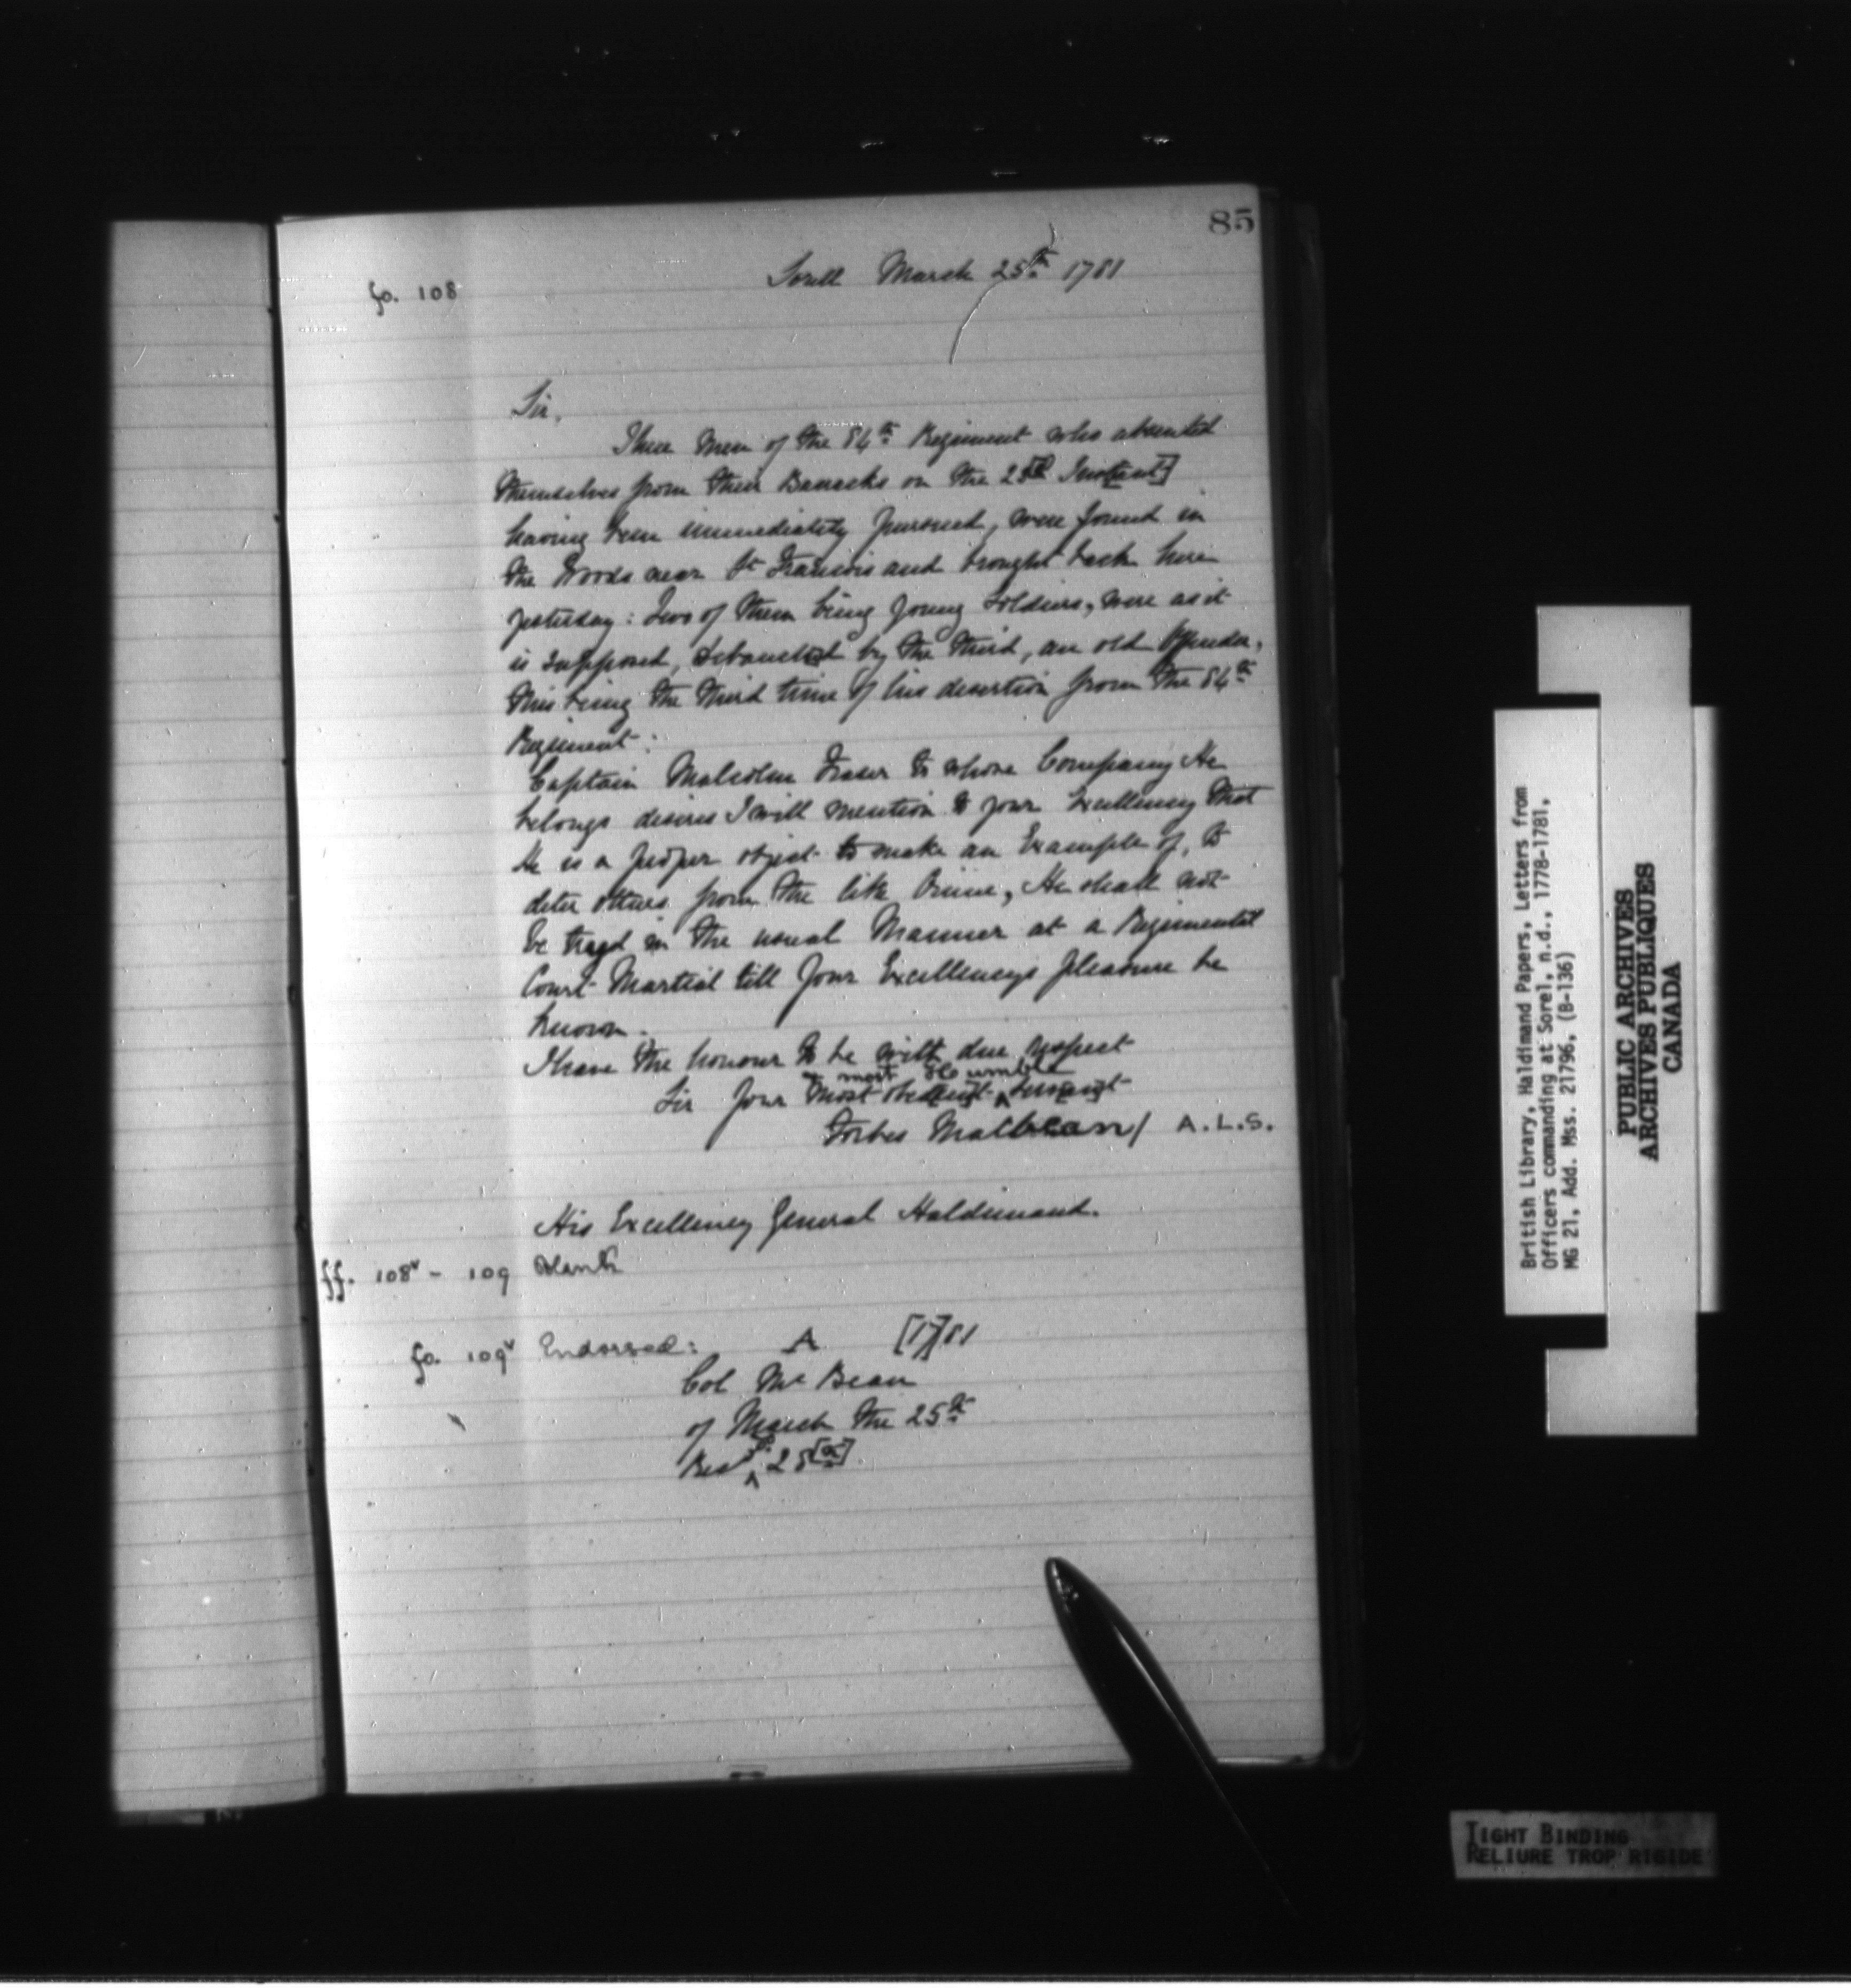 85
fo. 108
Sorell March 25th 1781
Sir,
Three Men of the 84th Regiment who absented
themselves from their Barracks on the Inst[ant]
having been immediately pursued, were found in
the Woods near St Francois and brought back here
yesterday: Two of them being young Soldiers, were as it
is supposed, debauched by the third, an old Offender,
this being the third time of his desertion from the 84th
Regiment:
Captain Malcolm Fraser to whose Company He
belongs desires I will mention to your Excellency that
He is a proper object to make an Example of, to
deter others from the like Crime, He shall not
be tryed in the usual Manner at a Regimental
Court Martial till Your Excellencys pleasure be
known.
I have the honour to be with due respect
Sir Your most obed[ien]t & most Humble Serv[an]t
Forbes Macbean/ A.L.S.
His Excellency General Haldimand.
ff. 108v - 109 Blank
fo. 109v Endorsed: A [17]81
Col Mc Bean
of March the 25th
Recd 28[th].
British Library, Haldimand Papers, Letters from
Officers commanding at Sorel, n.d., 1778-1781,
MG 21, Add. Mss. 21796, (B-136)
PUBLIC ARCHIVES
ARCHIVES PUBLIQUES
CANADA
TIGHT BINDING
RELIURE TROP RIGIDE